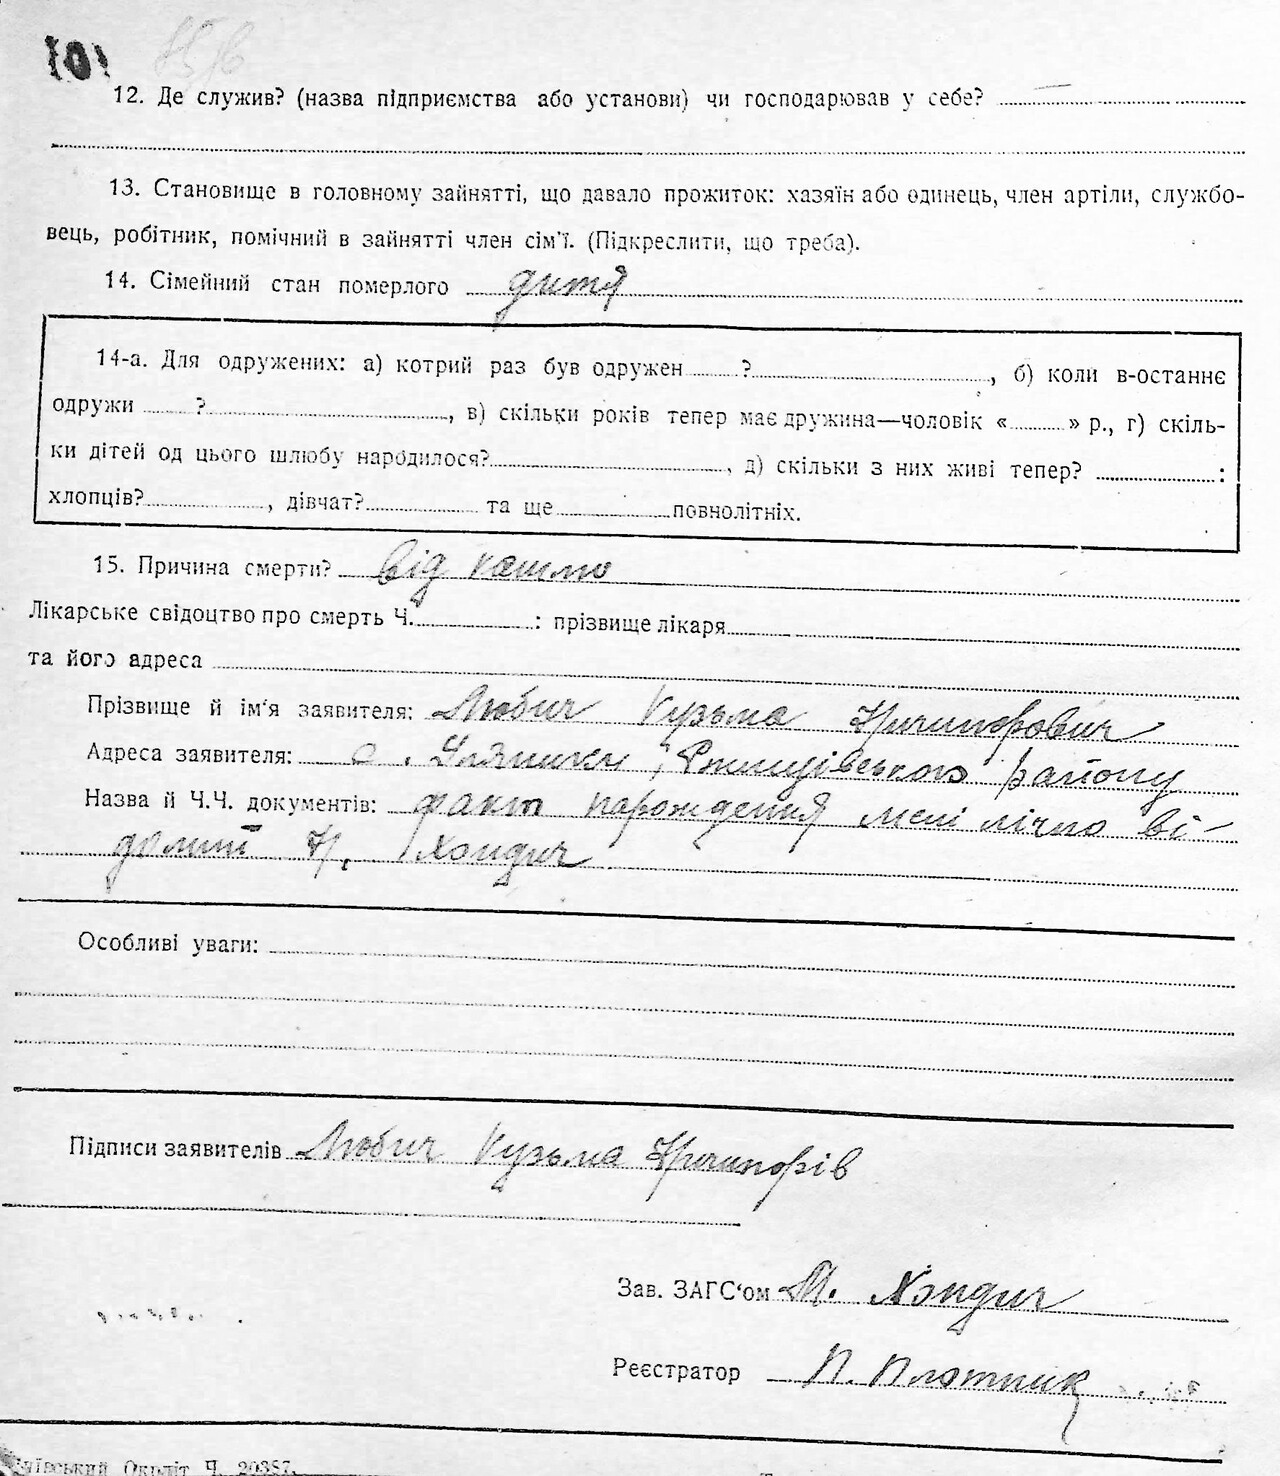 12. Де служив? (назва підприємства або установи) чи господарював у себе?
13. Становище в головному зайнятті, що давало прожиток: хазяїн або одинець, член артіли, службо-
вець, робітник, помічний в зайнятті член сім'ї. (Підкреслити, що треба).
14. Сімейний стан померлого дитя
14-а. Для одружених: а) котрий раз був одружен ?, б) коли в-останнє
одружи ?, в) скільки років тепер має дружина—чоловік « » р., г) скіль-
ки дітей од цього шлюбу народилося?, д) скільки з них живі тепер? :
хлопців?, дівчат? та ще повнолітніх.
15. Причина смерти? від кашлю
Лікарське свідоцтво про смерть Ч. : прізвище лікаря
та його адреса
Прізвище й ім'я заявителя: Любич Кузьма Ничипорович
Адреса заявителя: с. Уляники, Ржищівського району
Назва й Ч.Ч. документів: факт народження мені лічно ві-
Н. Хондич
Особливі уваги:
Підписи заявителів Любич Кузьма Ничипорів
Зав. ЗАГС'ом М. Хондич
Реєстратор П. Плотник
Київський Окрліт Ч. 20387.